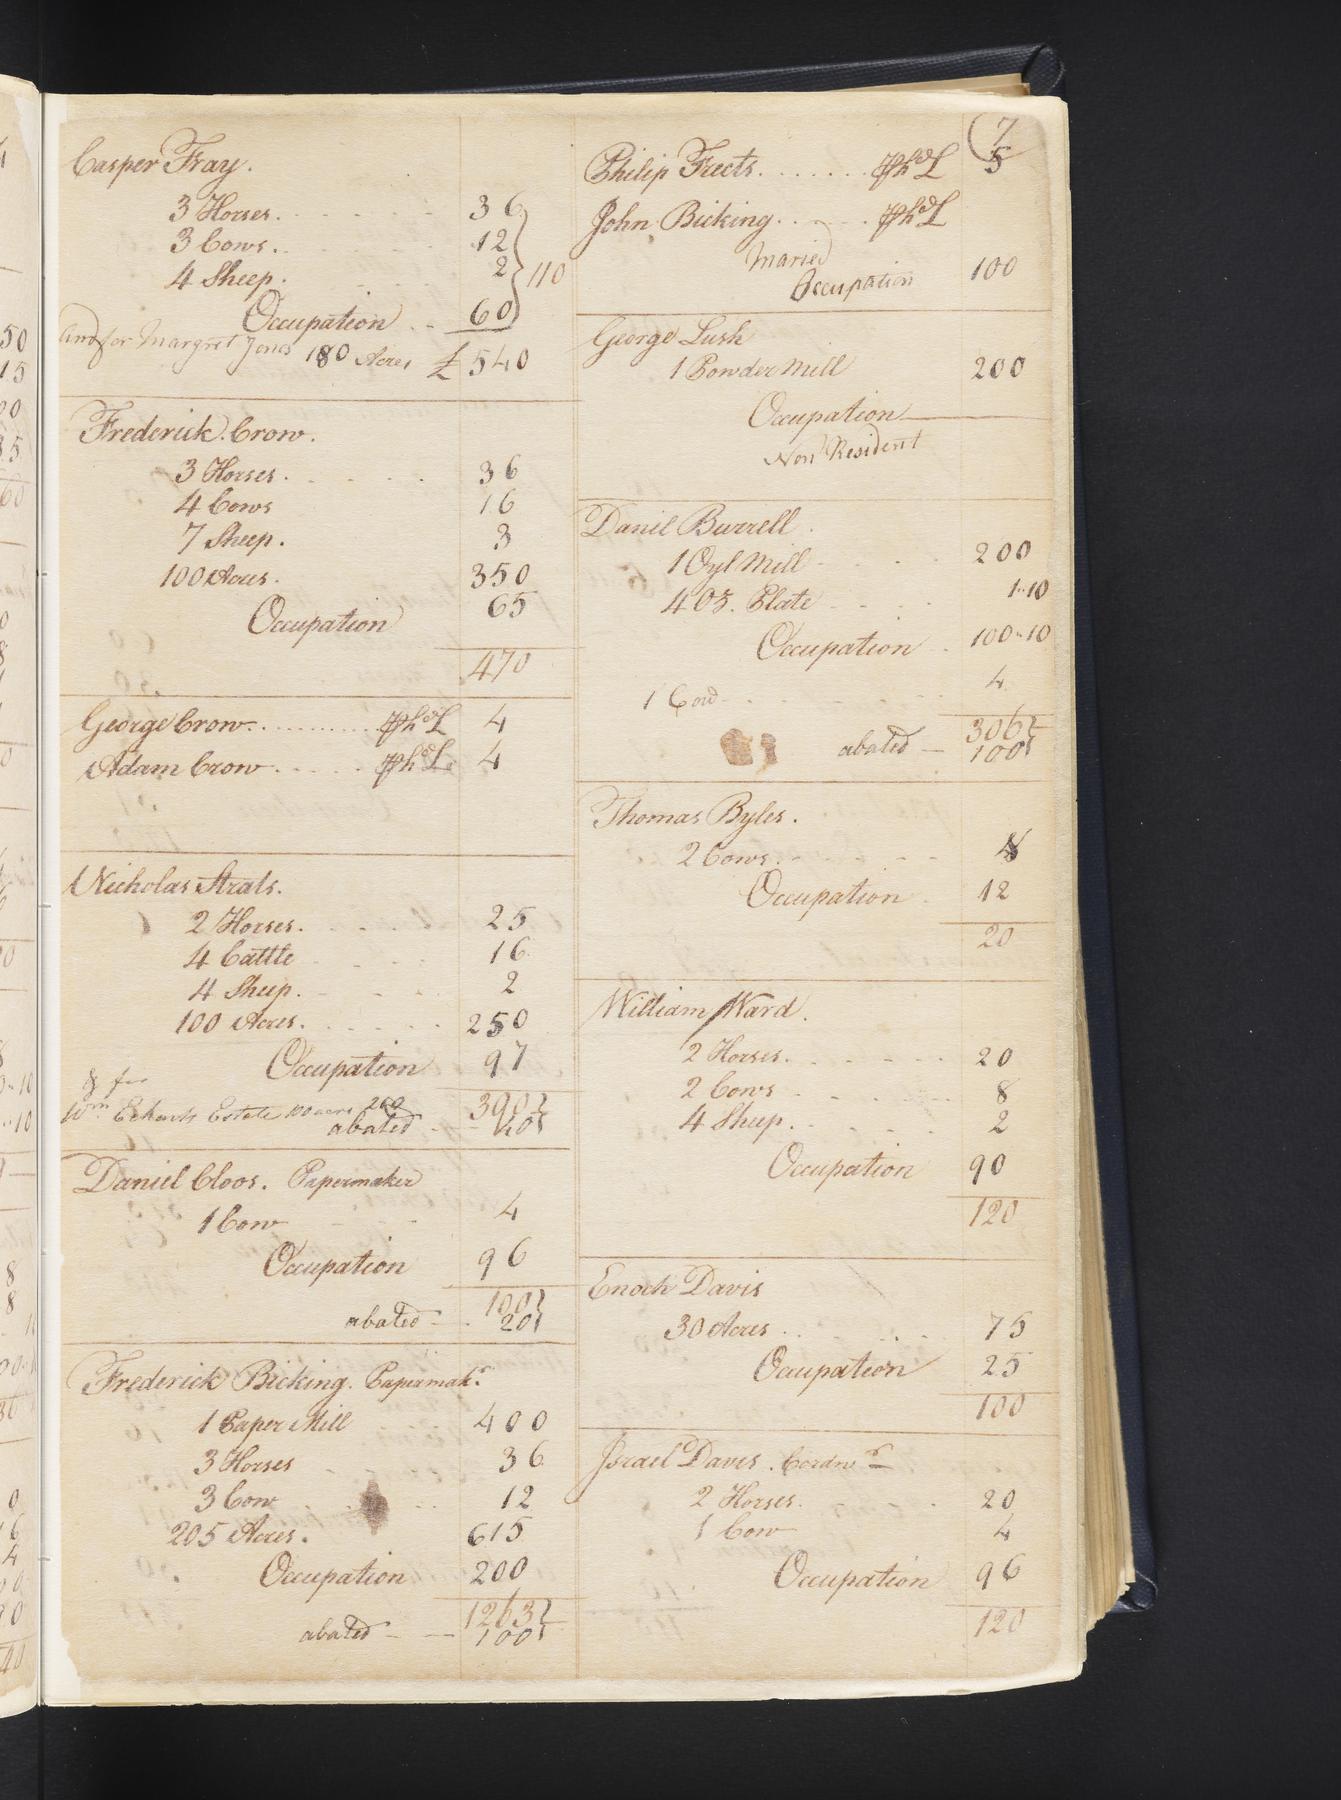 Casper Fray.
3 Horses. 36
3 Cows. 12
4 Sheep. 2 } 110
Occupation 60
and for Margret Jones 180 Acres £ 540
Frederick Crow.
3 Horses. 36
4 Cows 16
7 Sheep. 3
100 Acres. 350
Occupation 65
470
George Crow. 4
Adam Crow. 4
Nicholas Strats.
2 Horses. 25
4 Cattle 16
4 Sheep. 2
100 Acres. 250
Occupation 97
& for
Wm Eckarts Estate 100 acres 200 390
abated
Daniel Cloos. Papermaker
1 Cow 4
Occupation 96
100
abated 20
Frederick Bicking. Papermakr.
1 Paper Mill 400
3 Horses 36
3 Cow 12
205 Acres. 615
Occupation 200
1263
abated 100
7
Philip Freets. 5
John Bicking.
Maried
Occupation 100
George Lush
1 Powder Mill 200
Occupation
Non Resident
Daniel Burrell.
1 Oyl Mill 200
4 Oz. Plate 1..10
Occupation 100..10
1 Cow 4
306
abated 100
Thomas Byles.
2 Cows. 8
Occupation 12
20
William Ward.
2 Horses. 20
2 Cows 8
4 Sheep. 2
Occupation 90
120
Enoch Davis
30 Acres 75
Occupation 25
100
Israel Davis. Cordwr
2 Horses. 20
1 Cow 4
Occupation 96
120